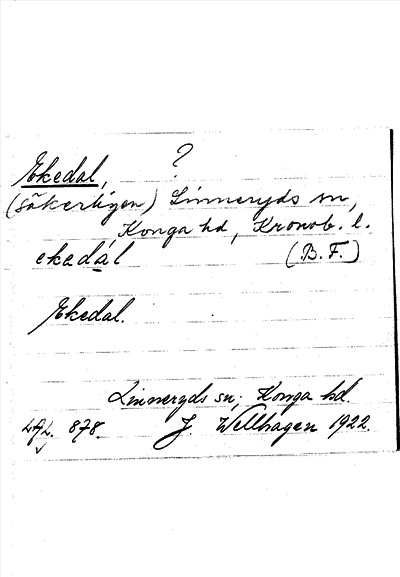 ?
Ekedal,
(säkerligen) Linneryds sn,
Konga hd, Kronob. l.
ekadál (B. F.)
Ekedal.
Linneryds sn; Konga hd.
878. J. Wellhagen 1922.